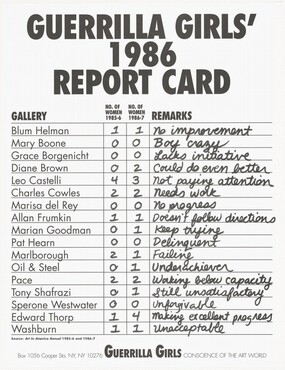 GUERRILLA GIRLS'
1986
REPORT CARD
GALLERY NO. OF WOMEN 1985-6 NO. OF WOMEN 1986-7 REMARKS
Blum Helman 1 1 no improvement
Mary Boone 0 0 Boy crazy
Grace Borgenicht 0 0 Lacks initiative
Diane Brown 0 2 Could do even better
Leo Castelli 4 3 not paying attention
Charles Cowles 2 2 needs work
Marisa del Rey 0 0 no progress
Allan Frumkin 1 1 Doesn't follow directions
Marian Goodman 0 1 Keep trying
Pat Hearn 0 0 Delinquent
Marlborough 2 1 Failing
Oil & Steel 0 1 Underachiever
Pace 2 2 Working below capacity
Tony Shafrazi 0 1 Still unsatisfactory
Sperone Westwater 0 0 Unforgivable
Edward Thorp 1 4 making excellent progress
Washburn 1 1 Unacceptable
Source: Art in America Annual 1985-6 and 1986-7
Box 1056 Cooper Sta. NY, NY 10276 GUERRILLA GIRLS CONSCIENCE OF THE ART WORLD